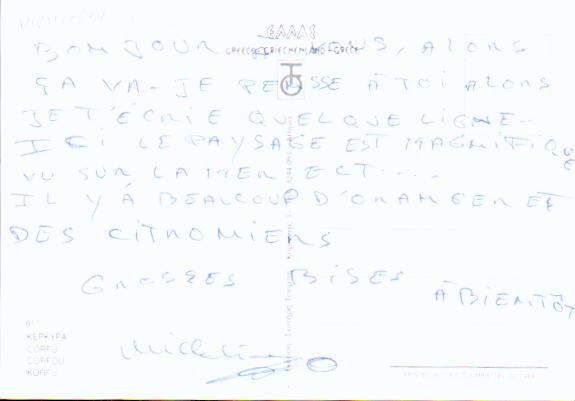 ΕΛΛΑΣ
GREECE - GRIECHENLAND - GRECE
BONJOUR ALORS
ÇA VA - JE PENSSE À TOI ALORS
JE T'ÉCRIE QUELQUE LIGNE--
ICI LE PAYSAGE EST MAGNIFIQUE
VU SUR LA MER ECT....
IL Y À BEAUCOUP D'ORANGER ET
DES CITRONIERS
GROSSES BISES
À BIENTÔT
ΚΕΡΚΥΡΑ
CORFU
CORFOU
KORFU